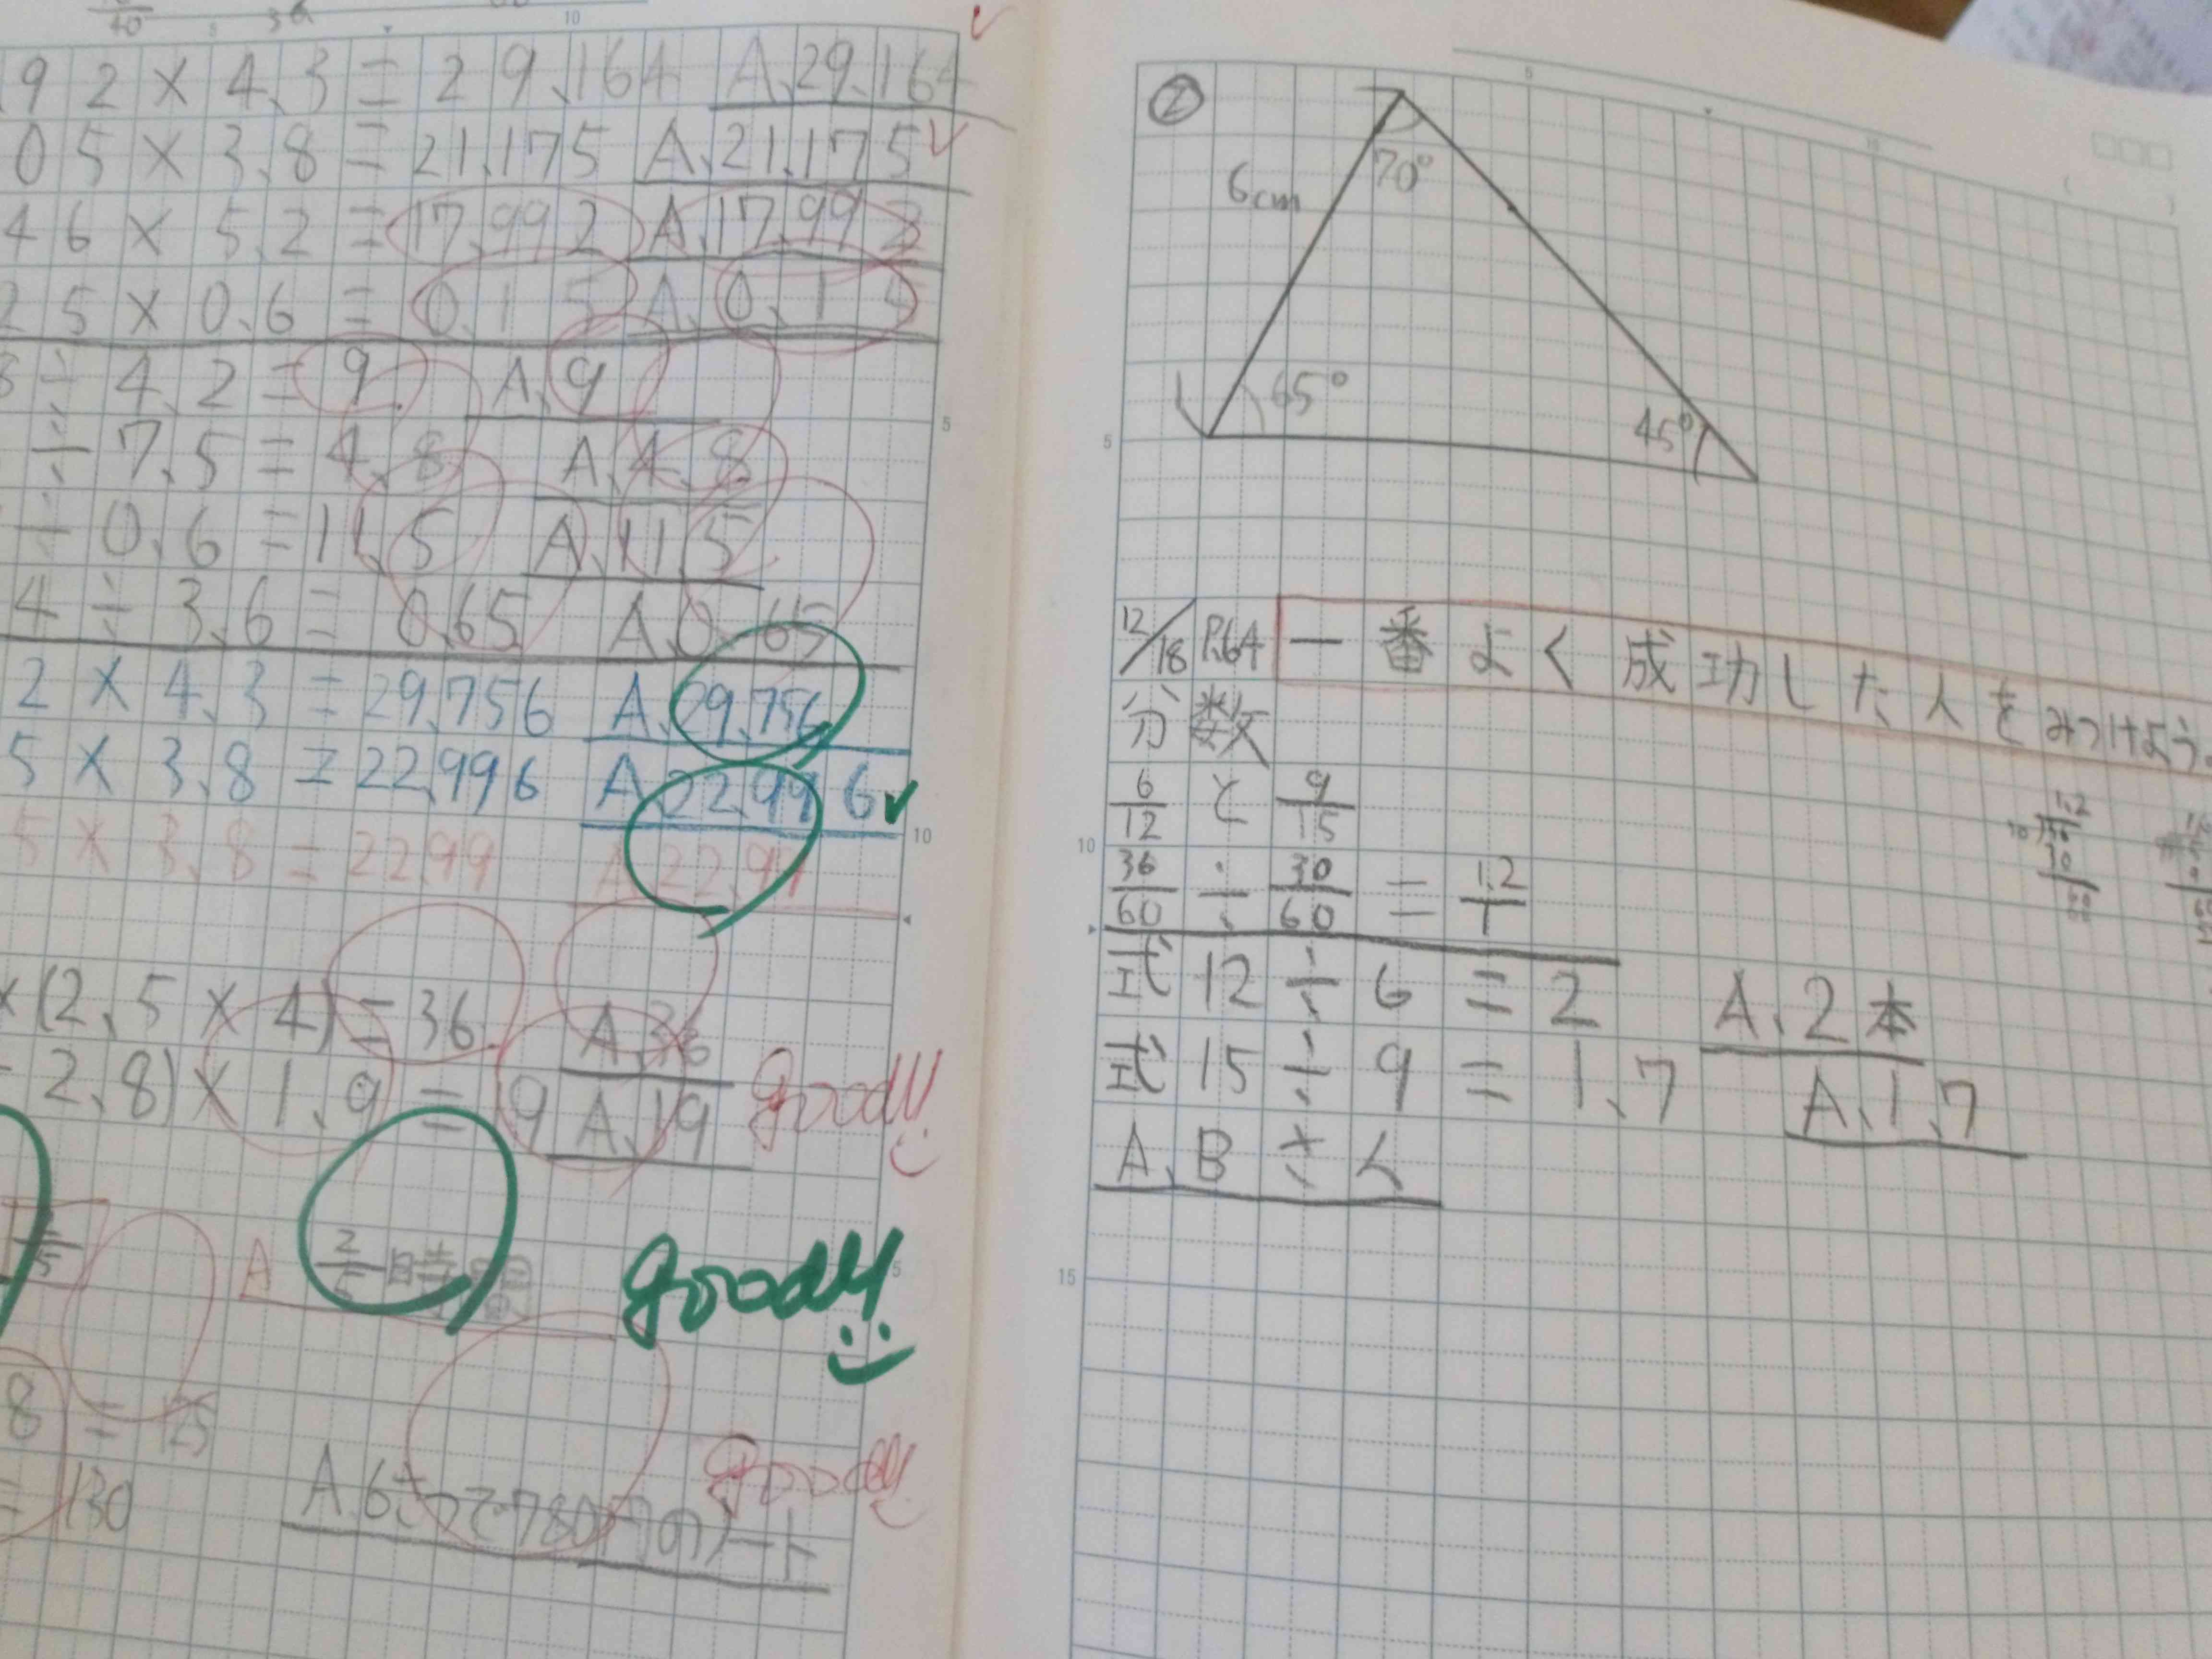 92×4.3=29.164 A.29.164
05×3.8=21.175 A.21.175
46×5.2=17.992 A.17.992
25×0.6=0.15 A.0.15
÷4.2=9 A.9
÷7.5=4.8 A.4.8
÷0.6=11.5 A.11.5
4÷3.6=0.65 A.0.65
2×4.3=29.756 A.29.756
5×3.8=22.996 A.22.996
5×3.8=22.99 A.22.99
×(2.5×4)=36 A.36
2.8)×1.9=19 A.19
good!!
A 2/5
good!!
8=125
=130
A.6こで780円のノート
good!!
②
70°
6cm
65°
45°
12/18 P.64 一番よく成功した人をみつけよう。
分数
6/12と9/15
36/60÷30/60=1.2/1
式12÷6=2 A.2本
式15÷9=1.7 A.1.7
A.Bさん